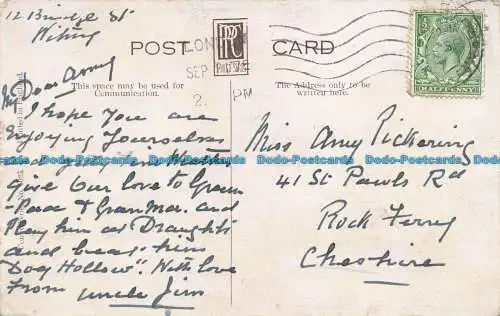 12 Bridge St
Witney
POST CARD
RP
LON
SEP
2.
PM
PHOTO
HALFPENNY
This space may be used for
Communication.
The Address only to be
written here.
My Dear Amy
I hope you are
enjoying yourselves
and
Give our love to Gran
and Gran Ma. and
Play him at Draughts
and him
Dog Hollow". With love
From Uncle Jim
Miss Amy Pickering
41 St Pawls Rd
Rock Ferry
Cheshire
Dodo-Postcards Dodo-Postcards Dodo-Postcards Dodo-Postcards